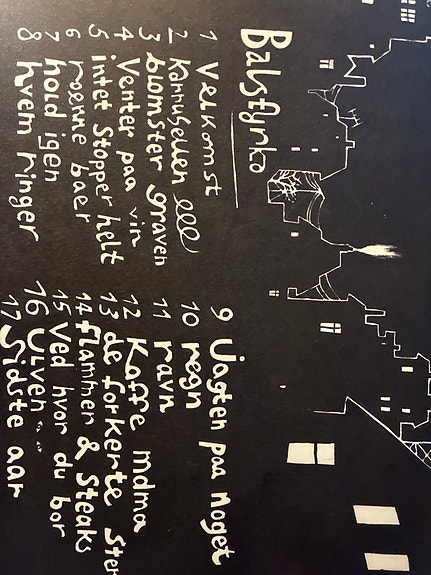 Balstyrko
1 Velkomst
2 Karrusellen
3 blomster graven
4 Venter paa vin
5 intet Stopper helt
6 roenne baer
7 hold igen
8 hvem ringer
9 Jagten paa noget
10 regn
11 ravn
12 Kaffe mdma
13 de forkerte Ster
14 flammer & Steaks
15 Ved hvor du bor
16 Ulven...
17 Sidste aar